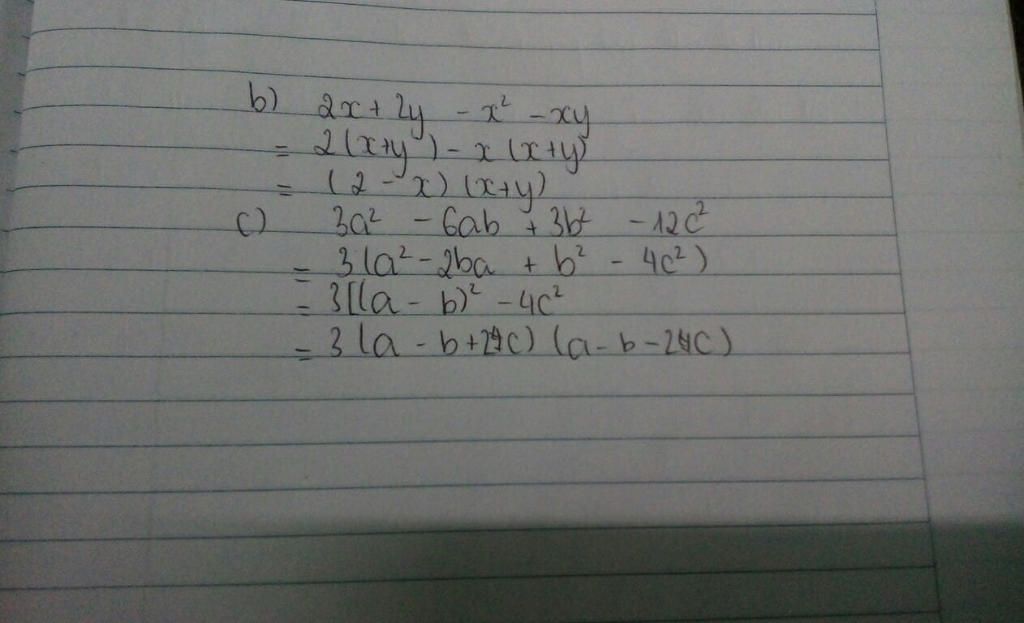 b) 2x + 2y - x² - xy
= 2(x+y) - x(x+y)
= (2 - x)(x+y)
c) 3a² - 6ab + 3b² - 12c²
= 3(a² - 2ba + b² - 4c²)
= 3[(a - b)² - 4c²
= 3(a - b + 2c)(a - b - 2c)